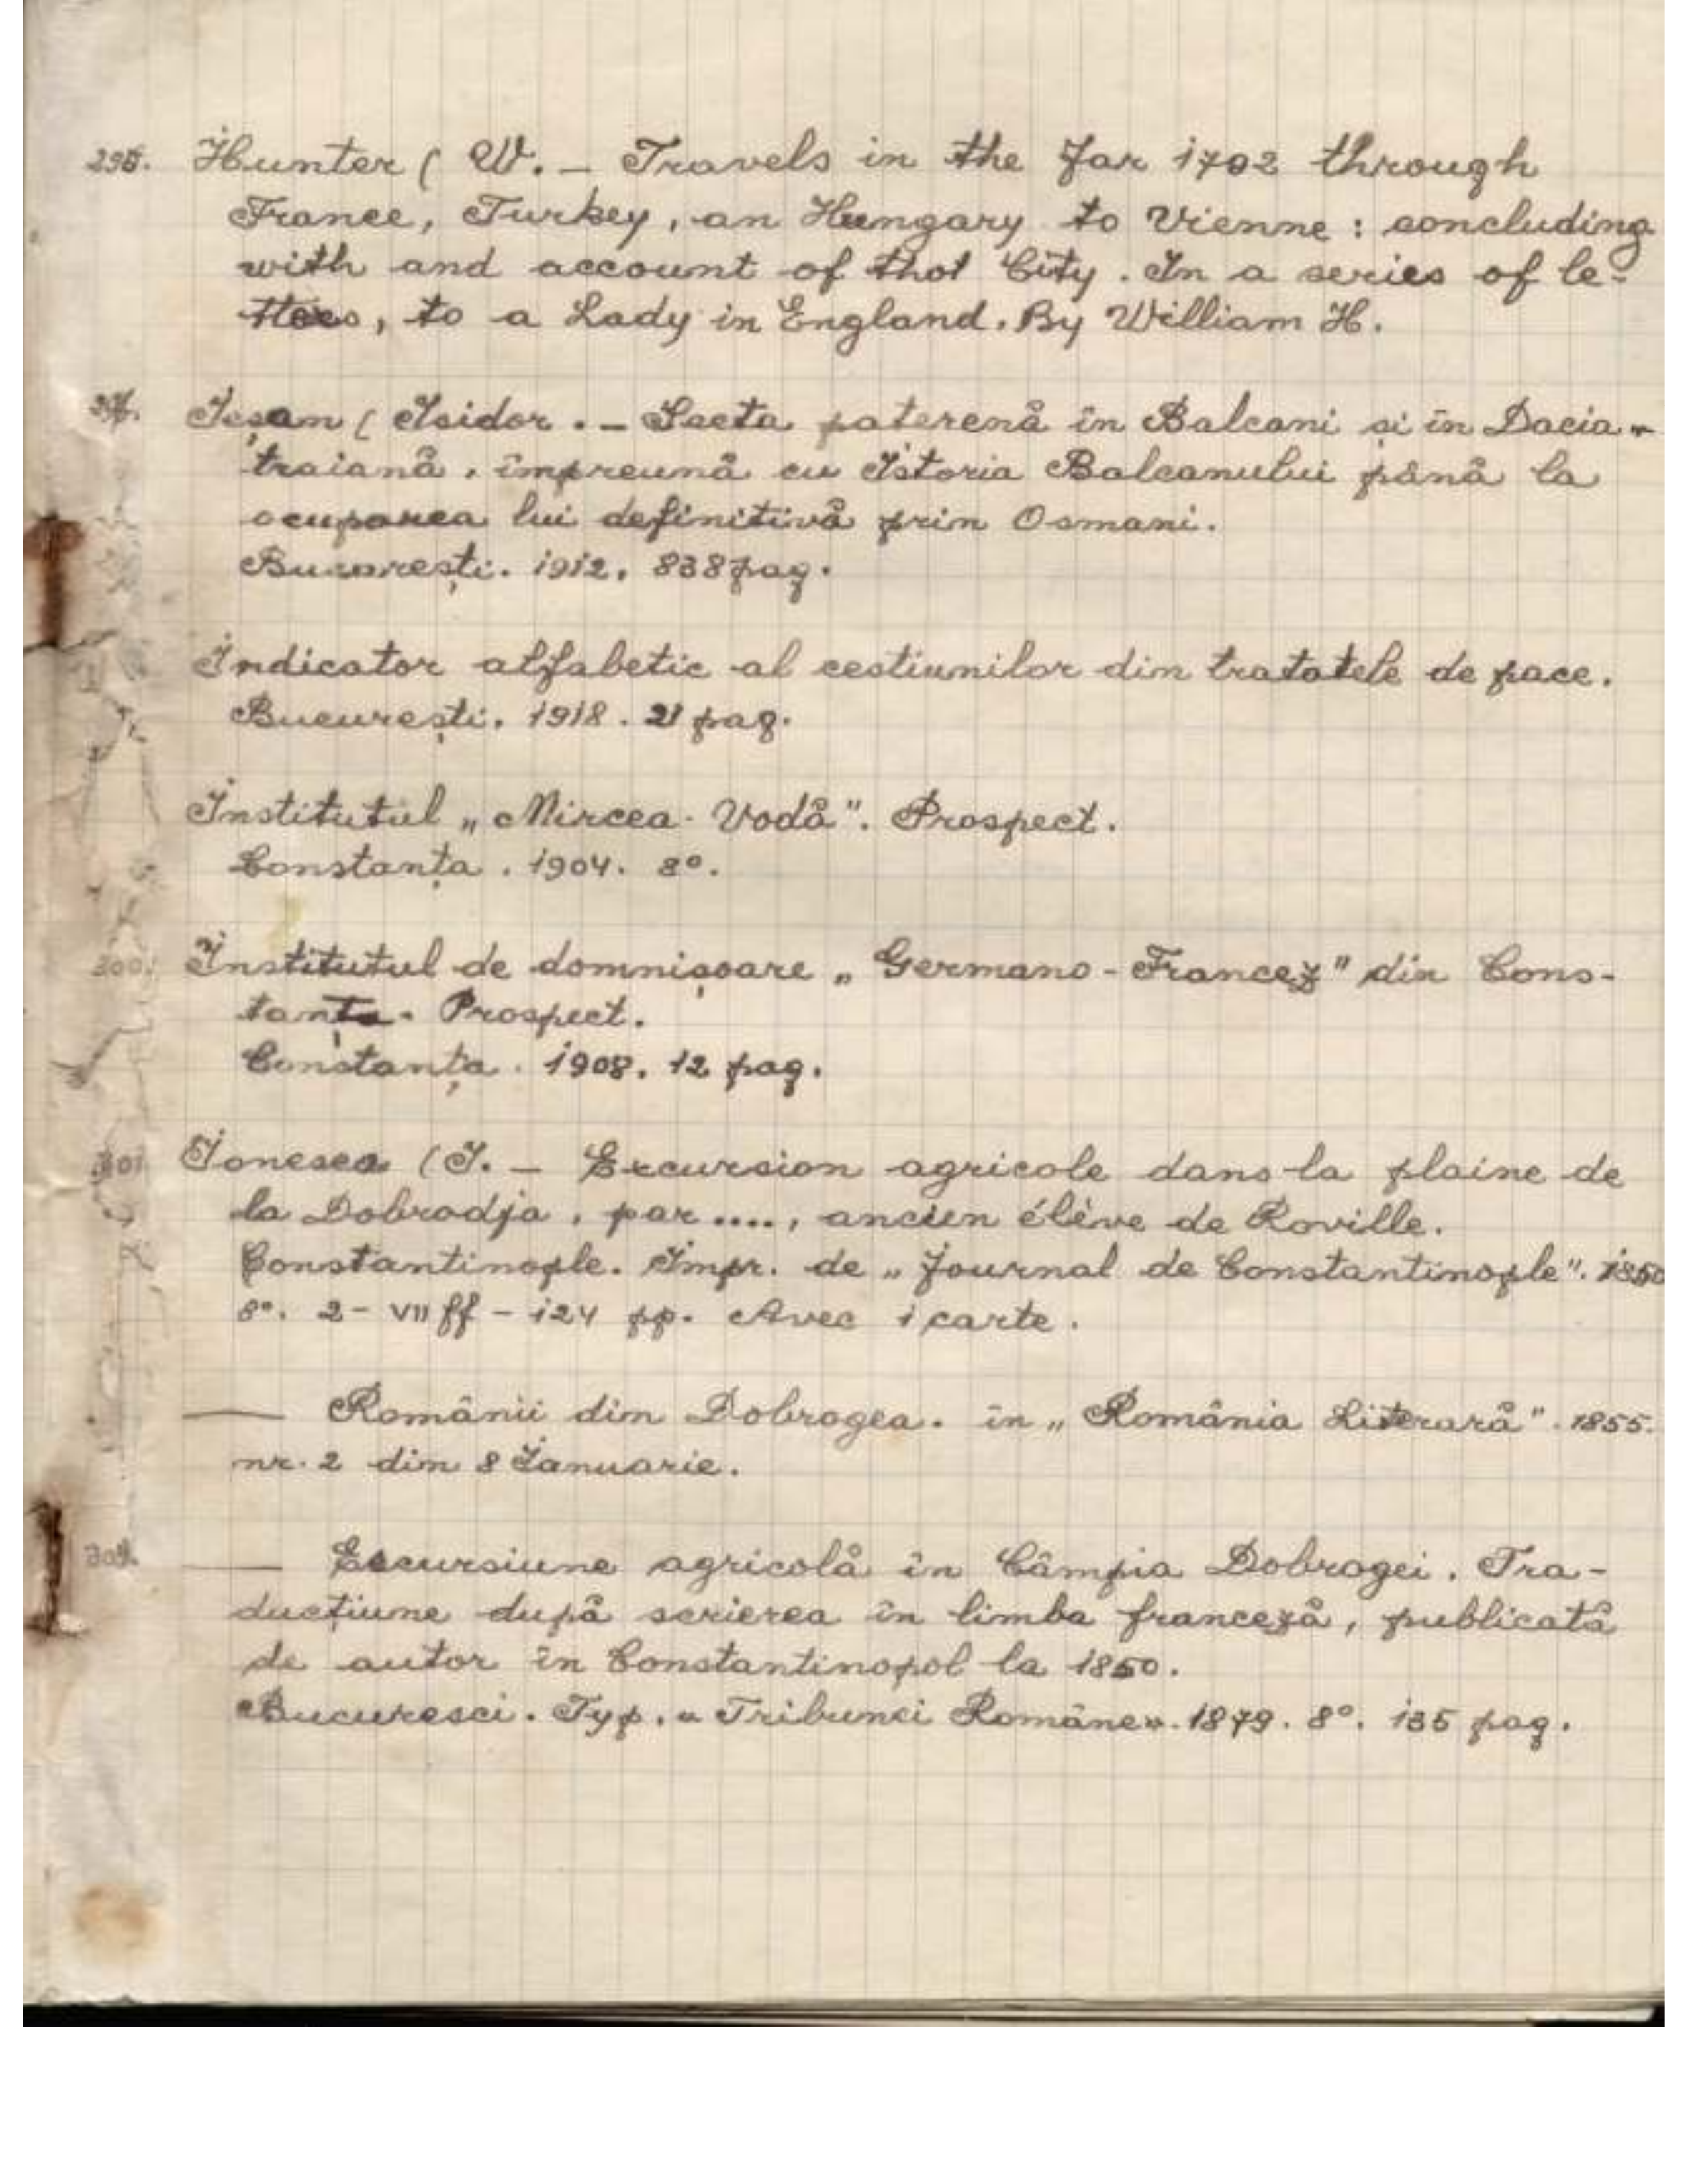 Hunter ( W. – Travels in the Jar 1702 through
France, Turkey, an Hungary to Vienne : concluding
with and account of thot City. In a series of le-
tters, to a Lady in England. By William H.
Ieșan ( Isidor . – Secta paterenă în Balcani și în Dacia-
traiană, împreună cu Istoria Balcanului până la
ocuparea lui definitivă prin Osmani.
București. 1912. 838 pag.
Indicator alfabetic al cestiunilor din tratatele de pace.
București. 1918. 21 pag.
Institutul „Mircea-Vodă". Prospect.
Constanța. 1904. 8°.
300. Institutul de domnișoare „Germano-Francez" din Cons-
tanța. Prospect.
Constanța. 1908. 12 pag.
301 Ionescu (I. – Excursion agricole dans la plaine de
la Dobrodja, par ...., ancien élève de Roville.
Constantinople. Impr. de „Journal de Constantinople". 1850
8°. 2 - VII ff - 124 pp. Avec 1 carte.
— Românii din Dobrogea. în „România Literară". 1855.
nr. 2 din 8 Ianuarie.
— Escursiune agricolă în Câmpia Dobrogei. Tra-
ducțiune după scrierea în limba franceză, publicată
de autor în Constantinopol la 1850.
Bucuresci. Typ. «Tribunei Române». 1879. 8°. 135 pag.